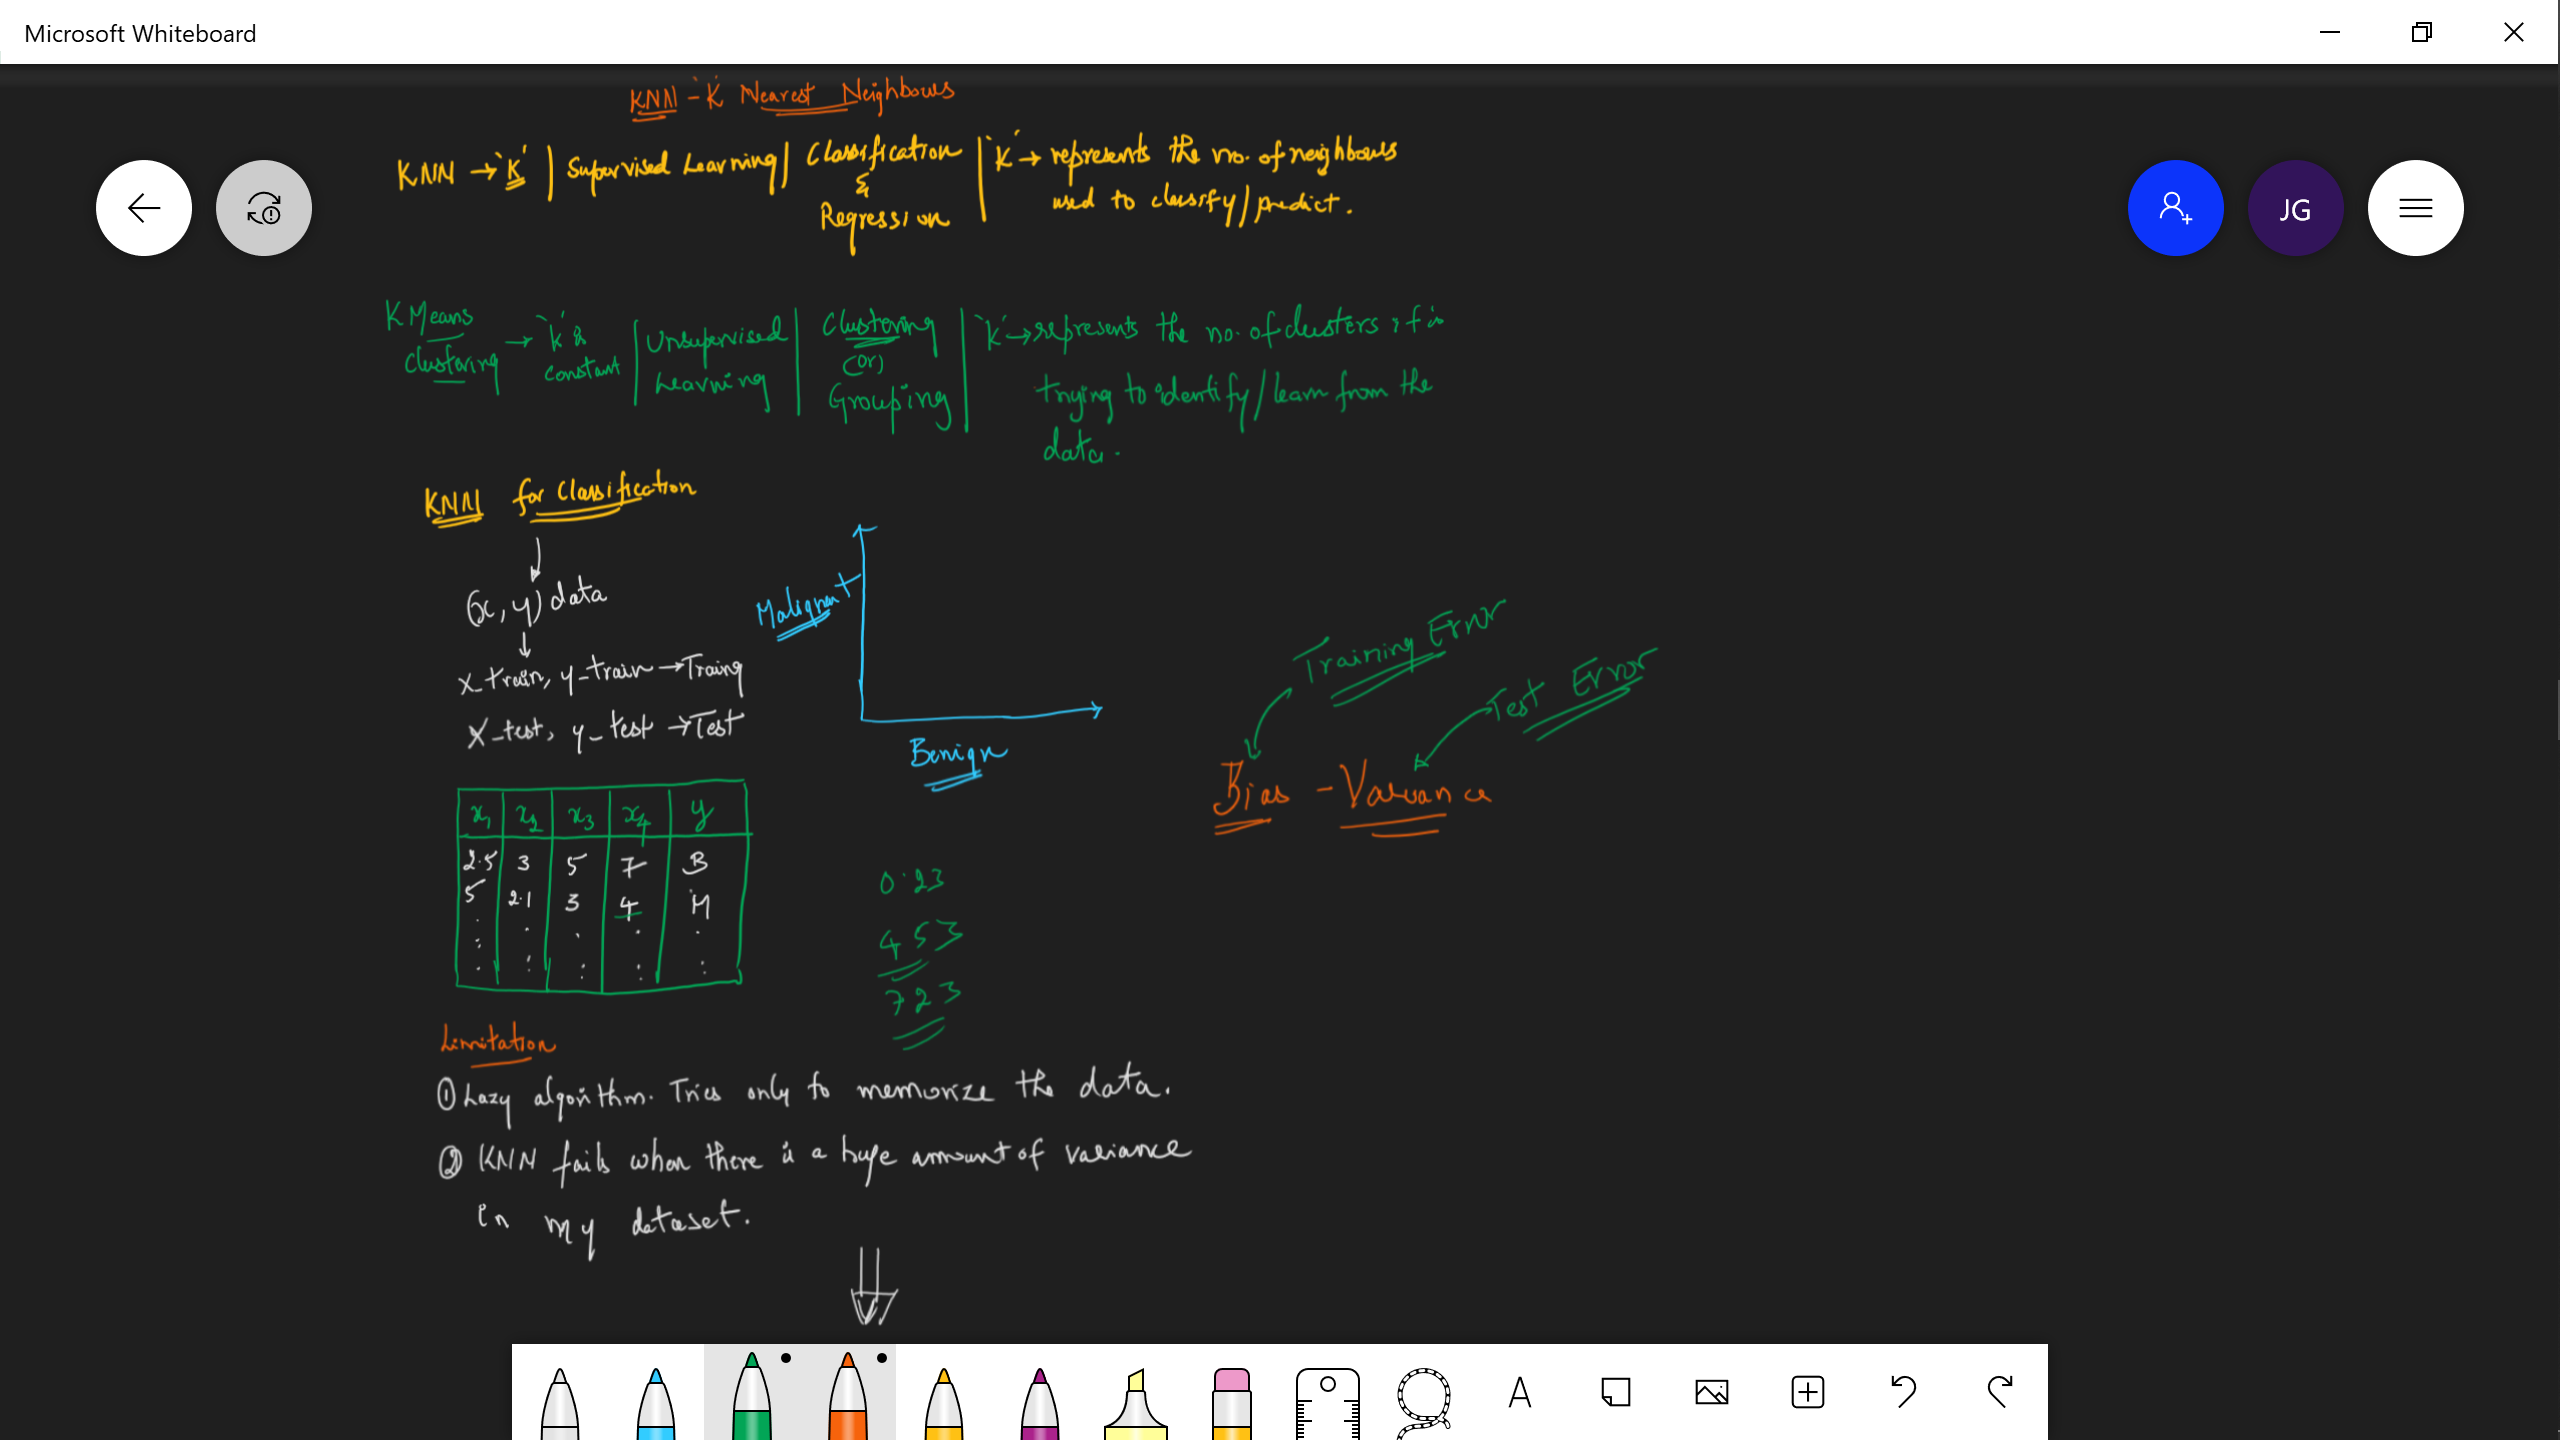 Microsoft Whiteboard
KNN - 'K' Nearest Neighbours
KNN → 'K' | Supervised Learning | Classification & Regression | 'K' → represents the no. of neighbours
used to classify/predict.
JG
K Means Clustering → 'K' is constant | Unsupervised Learning | Clustering (or) Grouping | 'K' → represents the no. of clusters it is
trying to identify/learn from the
data.
KNN for Classification
(x, y) data
x_train, y_train → Traing
X_test, y_test → Test
Malignant
Benign
Training Error
Test Error
Bias - Variance
x1 x2 x3 x4 y
2.5 3 5 7 B
5 2.1 3 4 M
0.23
453
723
Limitation
① Lazy algorithm. Tries only to memorize the data.
② KNN fails when there is a huge amount of variance
in my dataset.